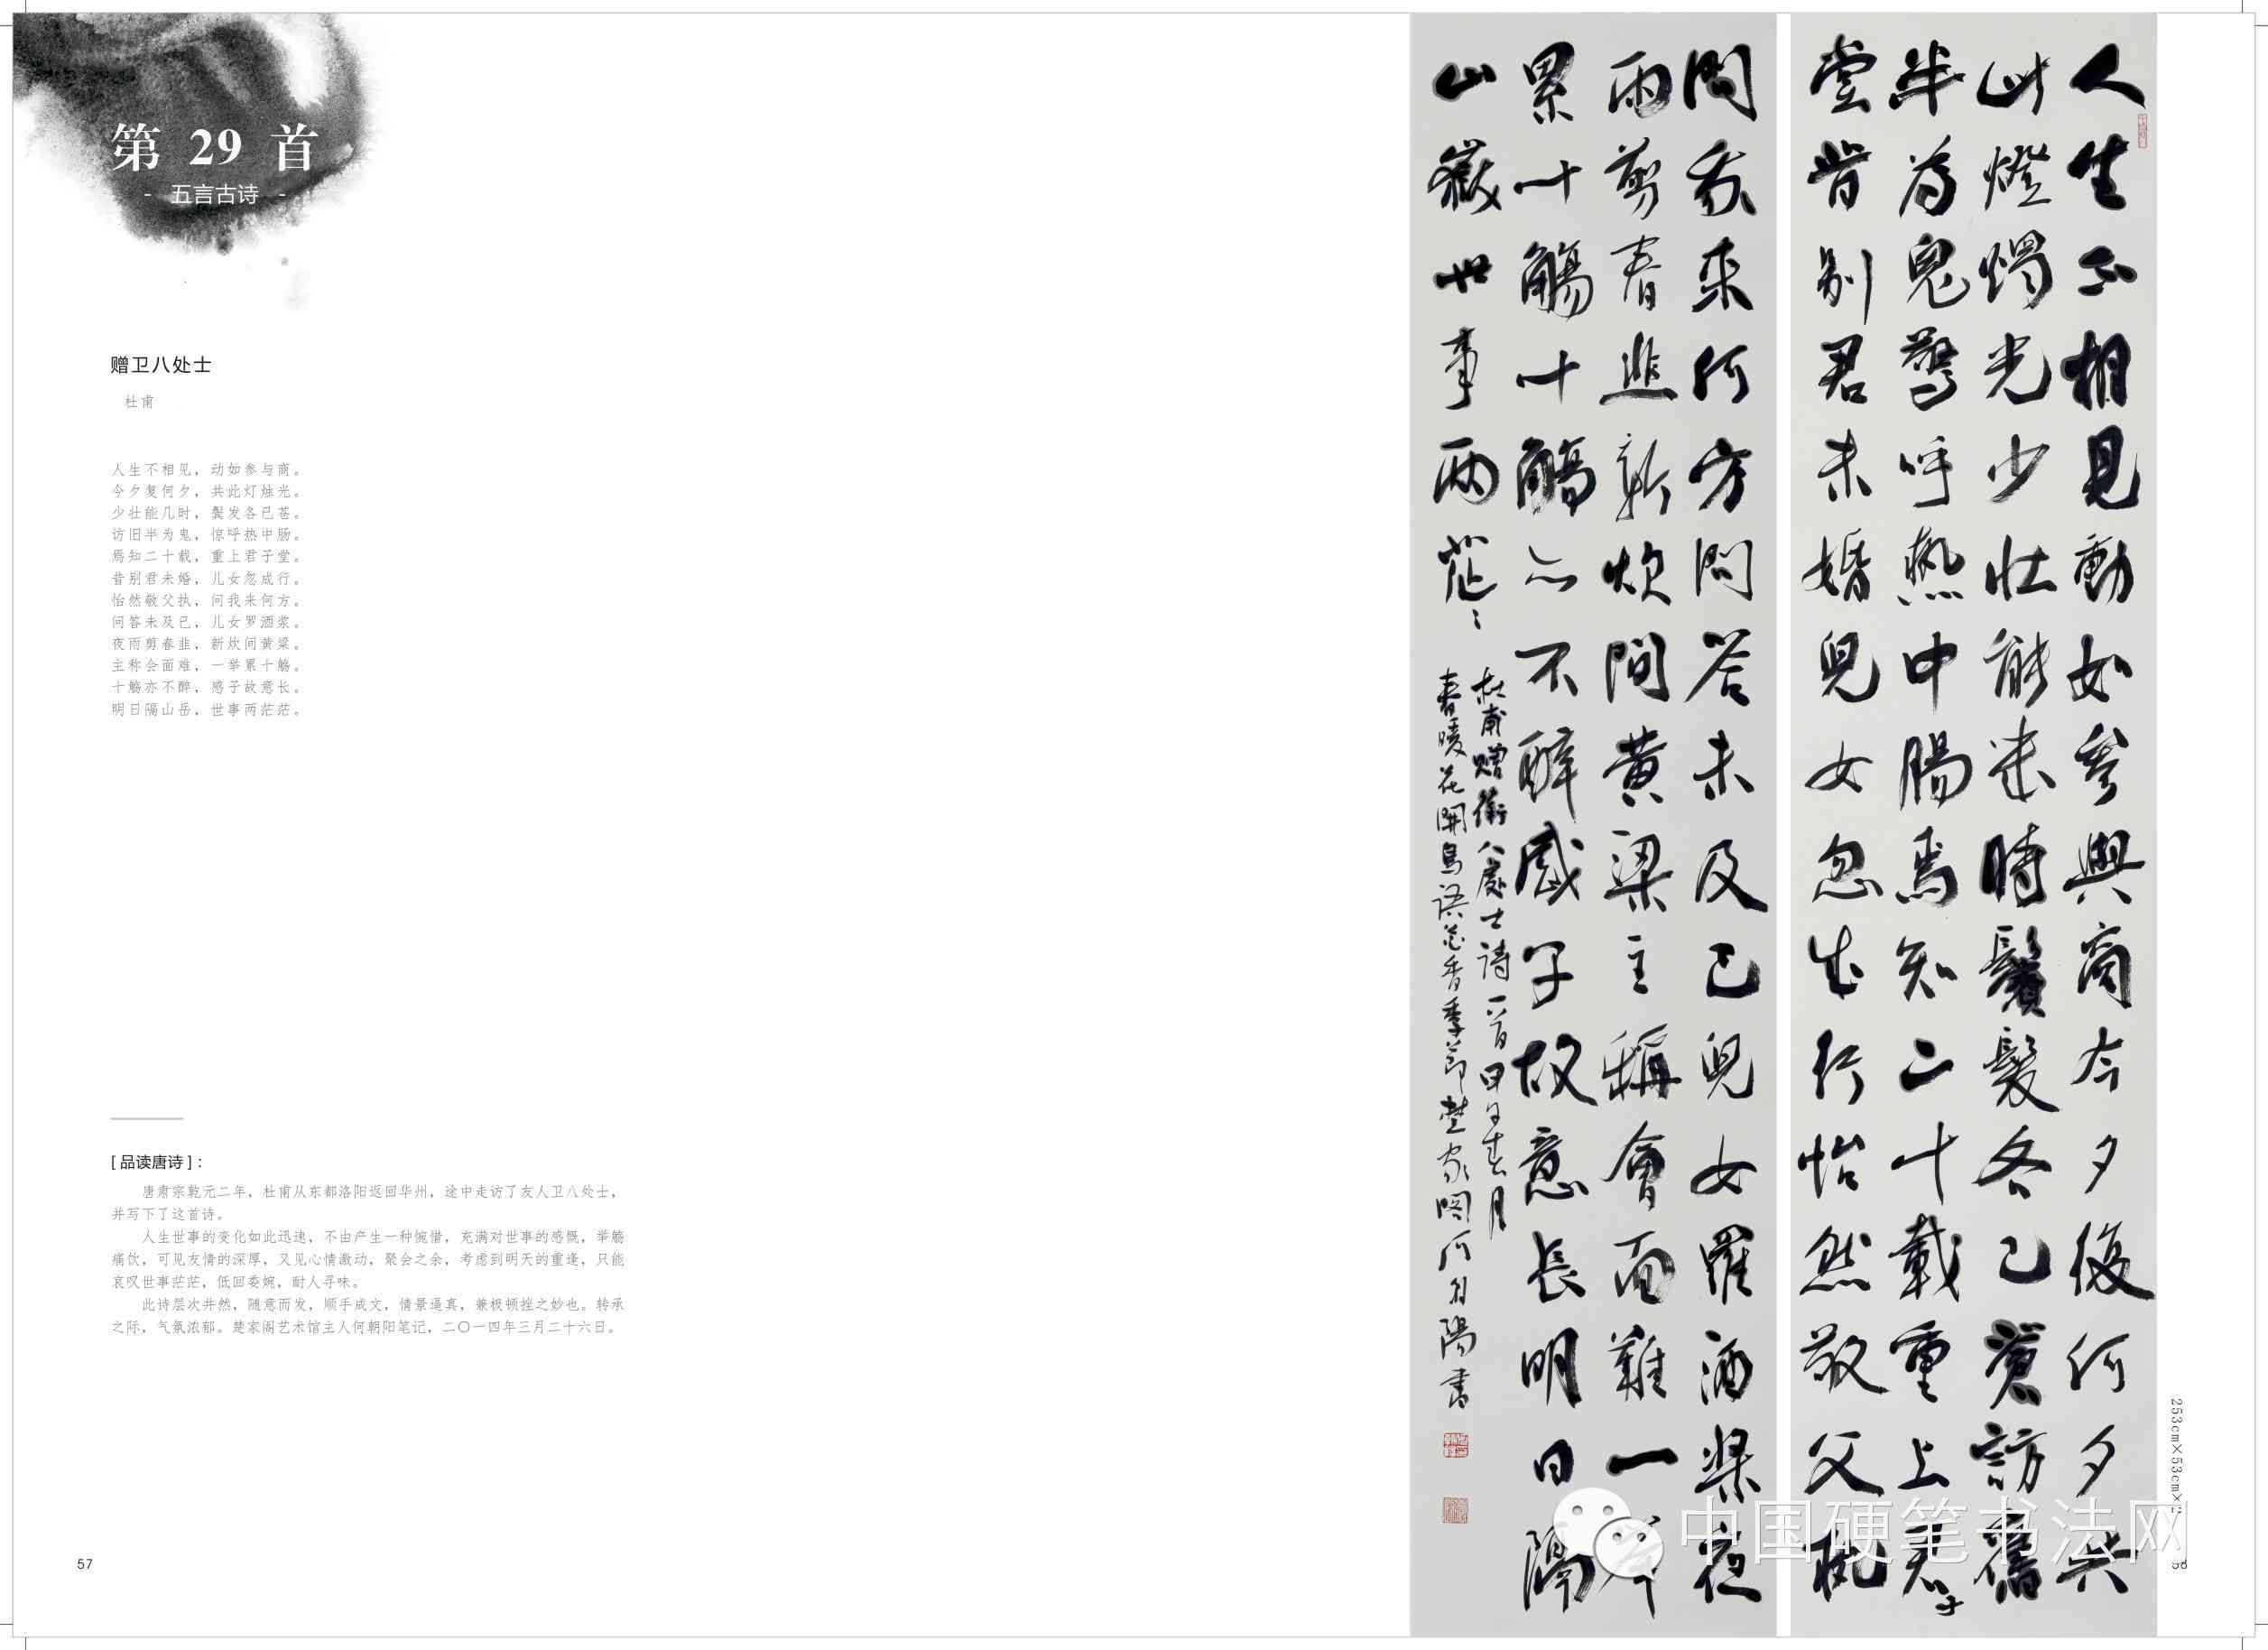 第 29 首
- 五言古诗 -
赠卫八处士
杜甫
人生不相见，动如参与商。
今夕复何夕，共此灯烛光。
少壮能几时，鬓发各已苍。
访旧半为鬼，惊呼热中肠。
焉知二十载，重上君子堂。
昔别君未婚，儿女忽成行。
怡然敬父执，问我来何方。
问答未及已，儿女罗酒浆。
夜雨剪春韭，新炊间黄粱。
主称会面难，一举累十觞。
十觞亦不醉，感子故意长。
明日隔山岳，世事两茫茫。
[ 品读唐诗 ]：
唐肃宗乾元二年，杜甫从东都洛阳返回华州，途中走访了友人卫八处士，
并写下了这首诗。
人生世事的变化如此迅速，不由产生一种惋惜，充满对世事的感慨，举觞
痛饮，可见友情的深厚，又见心情激动，聚会之余，考虑到明天的重逢，只能
哀叹世事茫茫，低回委婉，耐人寻味。
此诗层次井然，随意而发，顺手成文，情景逼真，兼极顿挫之妙也。转承
之际，气氛浓郁。楚家阁艺术馆主人何朝阳笔记，二〇一四年三月二十六日。
57
人生不相見動如參與商今夕復何夕共
此燈燭光少壯能幾時鬢髮各已蒼訪舊
半為鬼驚呼熱中腸焉知二十載重上君子
堂昔別君未婚兒女忽成行怡然敬父執
問我來何方問答未及已兒女羅酒漿夜
雨剪春韭新炊間黃粱主稱會面難一舉
累十觴十觴亦不醉感子故意長明日隔
山嶽世事兩茫〻
杜甫贈衛八處士詩一首甲午春月
春暖花開鳥語花香季節楚家閣何朝陽書
253cm×53cm×2
58
中国硬笔书法网